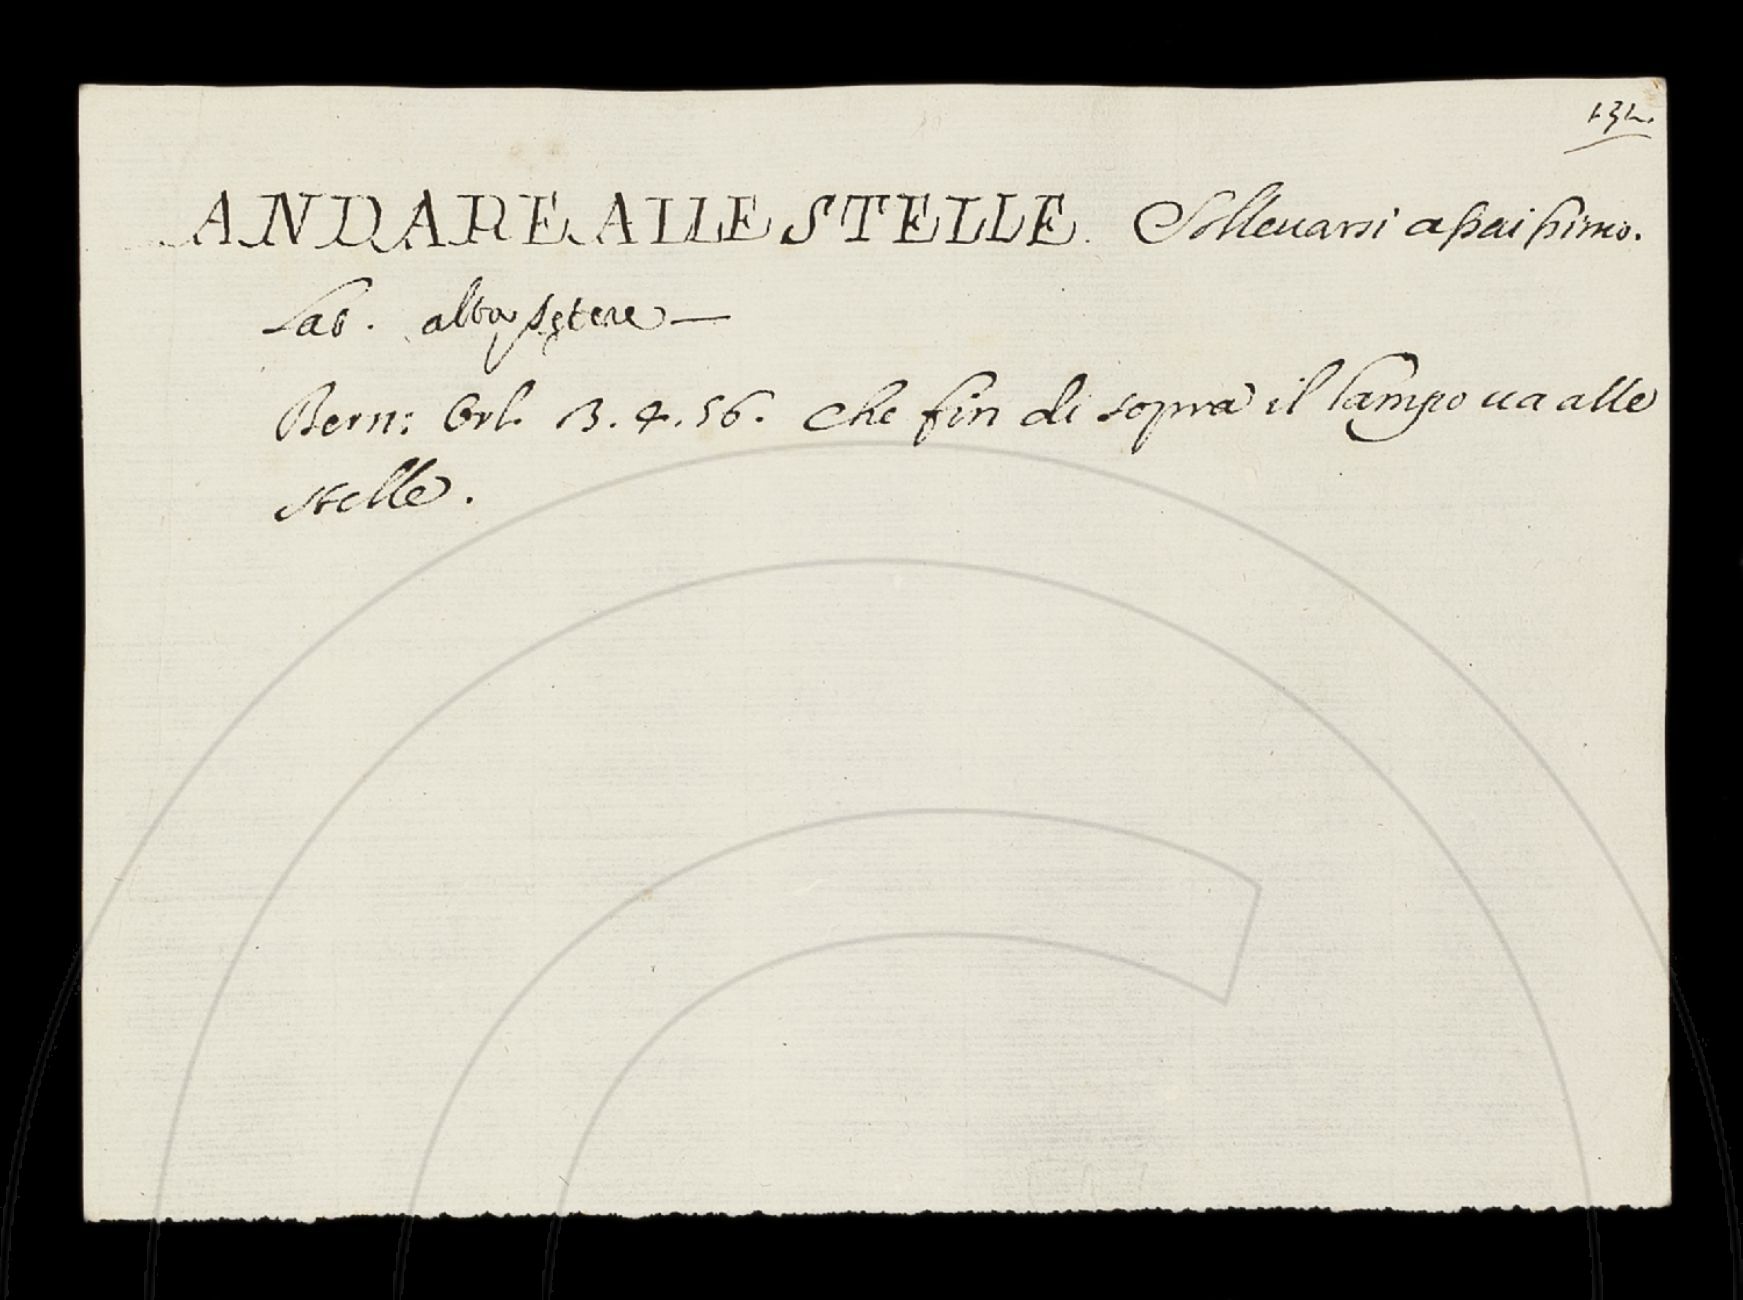 132.
ANDARE ALLE STELLE. Solleuarsi assaissimo.
Lat. alta petere —
Bern: Orl. 3. 4. 56. Che fin di sopra il lampo ua alle
stelle.